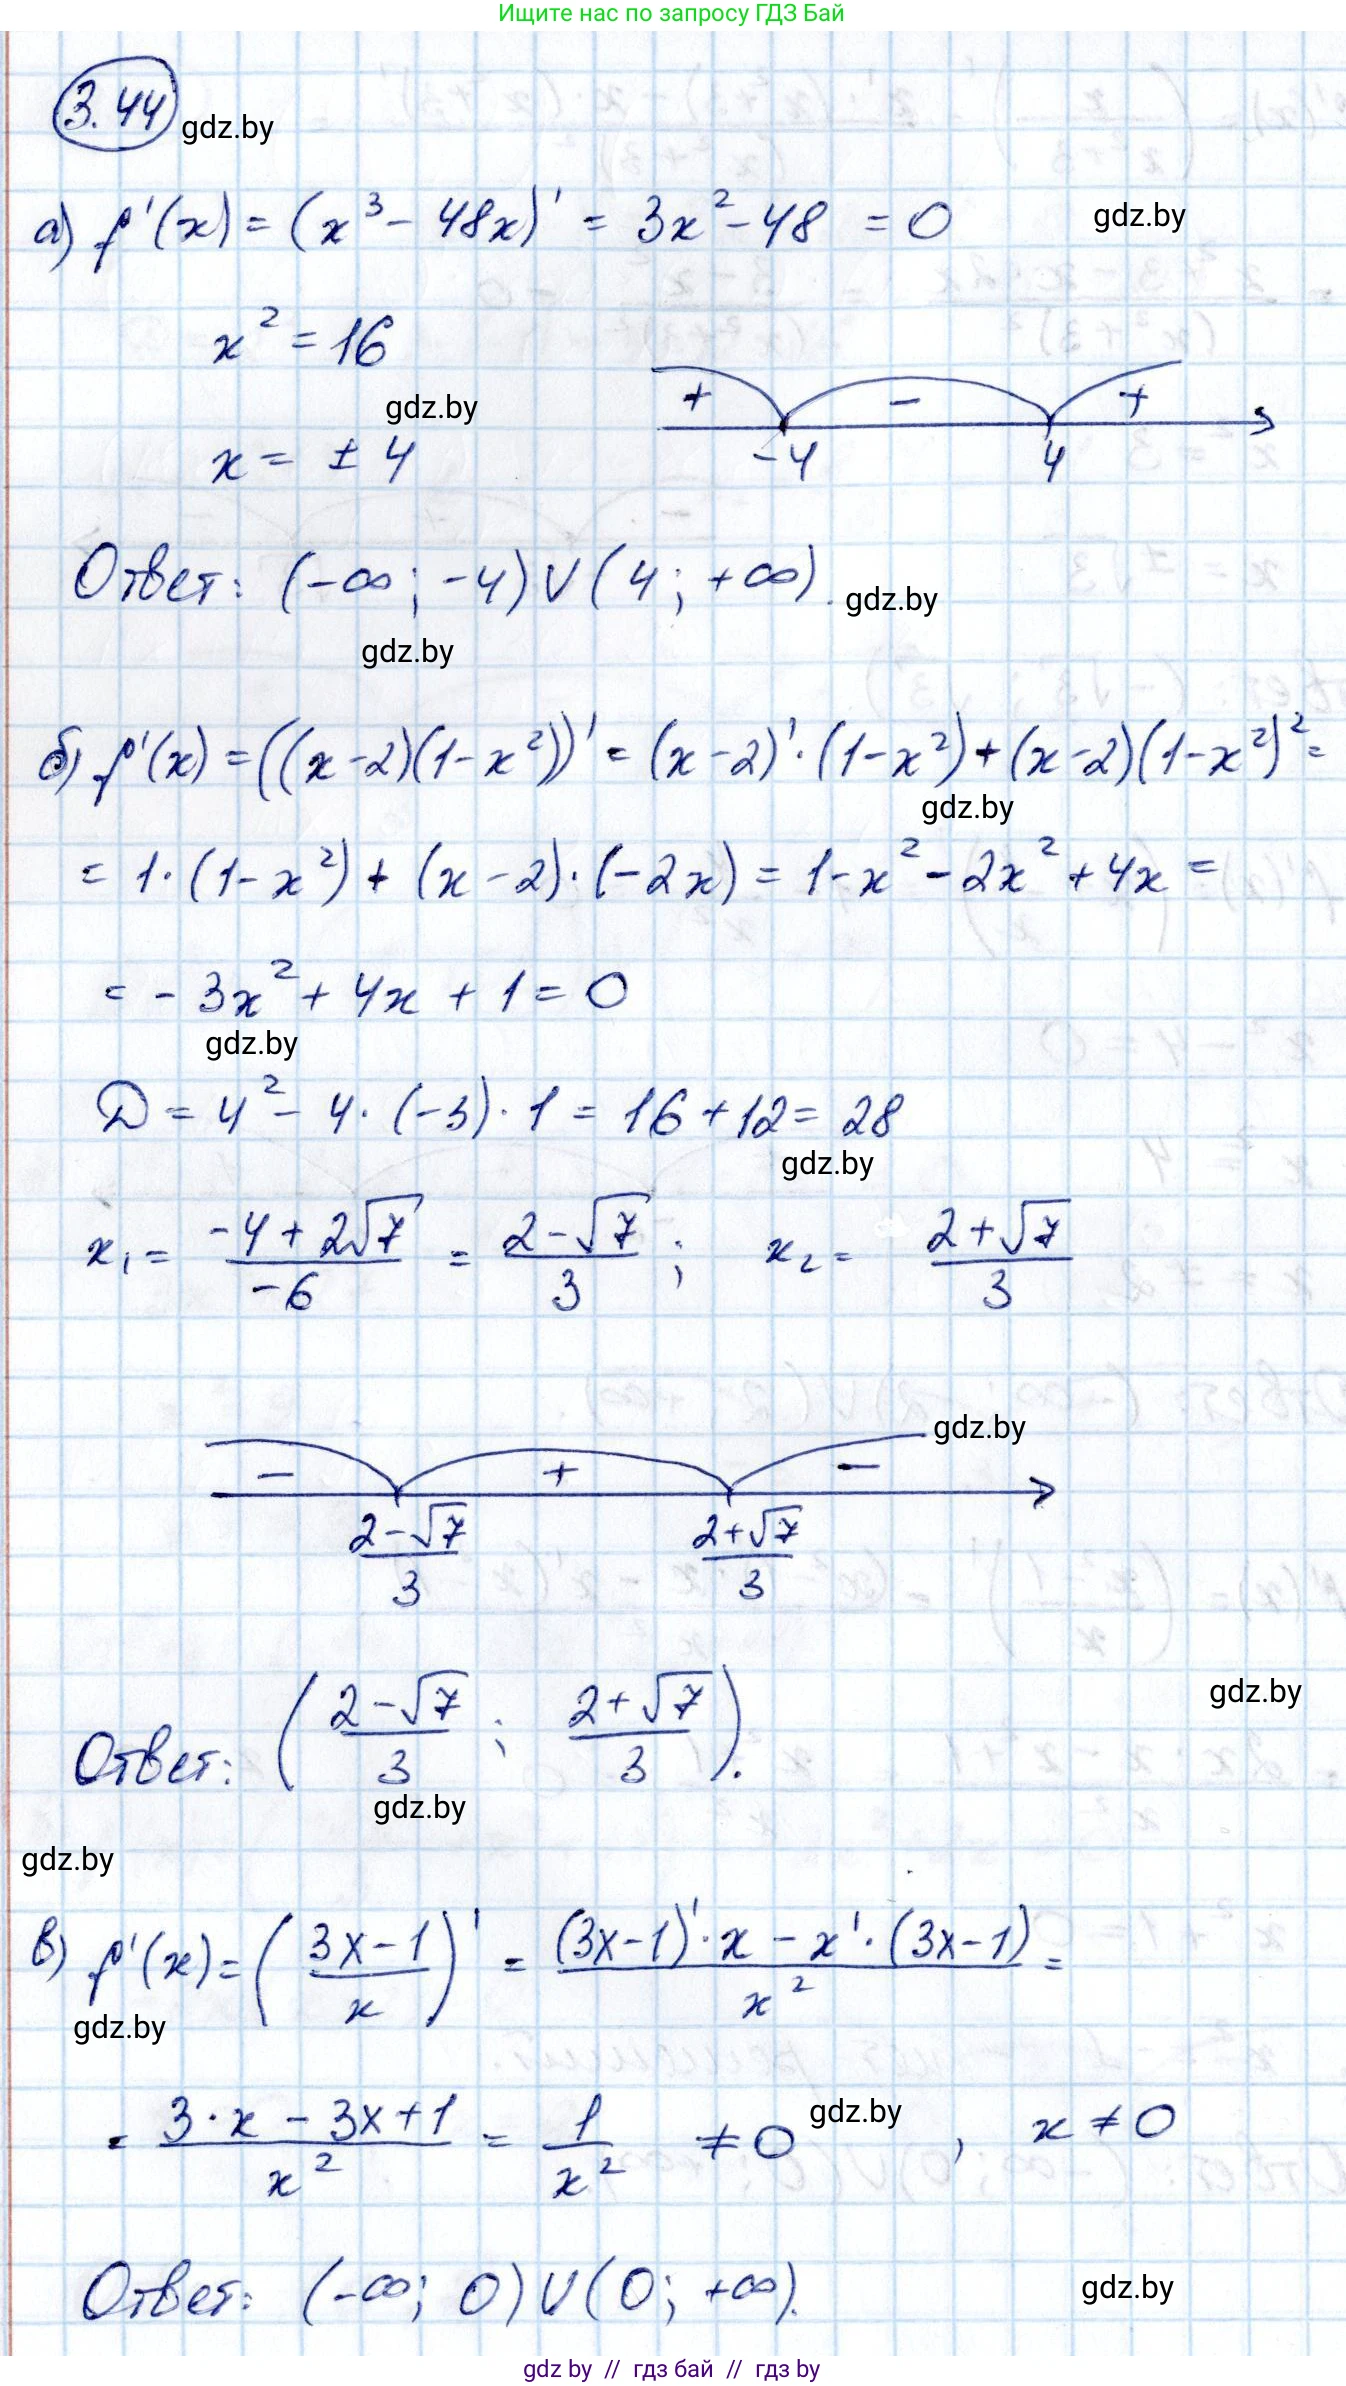 Ищите нас по запросу ГДЗ Бай
3.44 gdz.by
а) f'(x) = (x³ - 48x)' = 3x² - 48 = 0 gdz.by
x² = 16
+ - +
gdz.by
x = ± 4
-4 4
Ответ: (-∞; -4) ∪ (4; +∞). gdz.by
gdz.by
б) f'(x) = ((x-2)(1-x²))' = (x-2)'·(1-x²) + (x-2)(1-x²)² =
gdz.by
= 1·(1-x²) + (x-2)·(-2x) = 1-x² - 2x² + 4x =
= - 3x² + 4x + 1 = 0
gdz.by
D = 4² - 4·(-3)·1 = 16 + 12 = 28
gdz.by
x₁ = (-4+2√7)/(-6) = (2-√7)/3 ; x₂ = (2+√7)/3
gdz.by
- + -
(2-√7)/3 (2+√7)/3
gdz.by
Ответ: ((2-√7)/3 ; (2+√7)/3).
gdz.by
gdz.by
в) f'(x) = ((3x-1)/x)' = ((3x-1)'·x - x'·(3x-1))/x² =
gdz.by
= (3·x - 3x+1)/x² = 1/x² ≠ 0 gdz.by , x ≠ 0
Ответ: (-∞; 0) ∪ (0; +∞). gdz.by
gdz by // гдз бай // гдз by